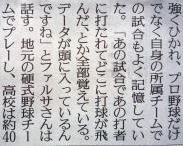 強くひかれ、プロ野球だけ
でなく自身の所属チームで
の試合もよく記憶してい
た。「あの試合であの打者
に打たれてどこに打球が飛
んだ、とか全部覚えている。
データが頭に入っているん
ですね」とファルサさんは
話す。地元の硬式野球チー
ムでプレーし、高校は約40